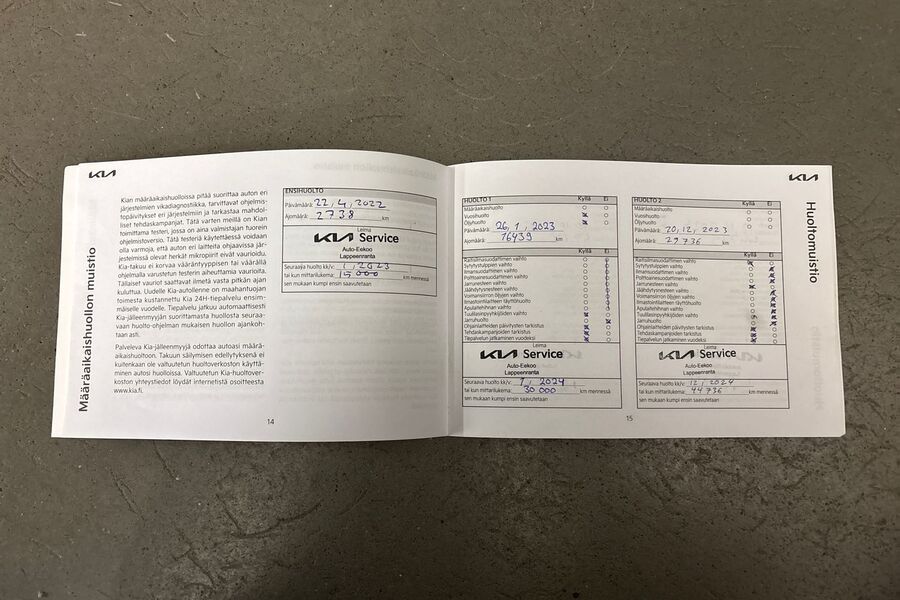 KIA
Määräaikaishuollon muistio
Kian määräaikaishuolloissa pitää suorittaa auton eri
järjestelmien vikadiagnostiikka, tarvittavat ohjelmis-
topäivitykset eri järjestelmiin ja tarkastaa mahdol-
liset tehdaskampanjat. Tätä varten meillä on Kian
toimittama testeri, jossa on aina valmistajan tuorein
ohjelmistoversio. Tätä testeriä käytettäessä voidaan
olla varmoja, että auton eri laitteita ohjaavissa jär-
jestelmissä olevat herkät mikropiirit eivät vaurioidu.
Kia-takuu ei korvaa vääräntyyppisen tai väärällä
ohjelmalla varustetun testerin aiheuttamia vaurioita.
Tällaiset vauriot saattavat ilmetä vasta pitkän ajan
kuluttua. Uudelle Kia-autollenne on maahantuojan
toimesta kustannettu Kia 24H-tiepalvelu ensim-
mäiselle vuodelle. Tiepalvelu jatkuu automaattisesti
Kia-jälleenmyyjän suorittamasta huollosta seuraa-
vaan huolto-ohjelman mukaisen huollon ajankoh-
taan asti.
Palveleva Kia-jälleenmyyjä odottaa autoasi määrä-
aikaishuoltoon. Takuun säilymisen edellytyksenä ei
kuitenkaan ole valtuutetun huoltoverkoston käyttä-
minen autosi huolloissa. Valtuutetun Kia-huoltover-
koston yhteystiedot löydät internetistä osoitteesta
www.kia.fi.
ENSIHUOLTO
Päivämäärä: 22,4,2022
Ajomäärä: 2738 km
Leima
KIA Service
Auto-Eekoo
Lappeenranta
Seuraava huolto kk/v: 1, 2023
tai kun mittarilukema: 15 000 km mennessä
sen mukaan kumpi ensin saavutetaan
14
KIA
Huoltomuistio
HUOLTO 1 Kyllä Ei
Määräaikaishuolto
Vuosihuolto
Öljyhuolto
Päivämäärä: 26, 1, 2023
Ajomäärä: 16439 km
Kyllä Ei
Raitisilmasuodattimen vaihto
Sytytystulppien vaihto
Ilmansuodattimen vaihto
Polttoainesuodattimen vaihto
Jarrunesteen vaihto
Jäähdytysnesteen vaihto
Voimansiirron öljyjen vaihto
Ilmastointilaitteen täyttöhuolto
Apulaitehihnan vaihto
Tuulilasinpyyhkijöiden vaihto
Jarruhuolto
Ohjainlaitteiden päivitysten tarkistus
Tehdaskampanjoiden tarkistus
Tiepalvelun jatkaminen vuodeksi
Leima
KIA Service
Auto-Eekoo
Lappeenranta
Seuraava huolto kk/v: 1, 2024
tai kun mittarilukema: 30 000 km mennessä
sen mukaan kumpi ensin saavutetaan
HUOLTO 2 Kyllä Ei
Määräaikaishuolto
Vuosihuolto
Öljyhuolto
Päivämäärä: 20, 12, 2023
Ajomäärä: 29736 km
Kyllä Ei
Raitisilmasuodattimen vaihto
Sytytystulppien vaihto
Ilmansuodattimen vaihto
Polttoainesuodattimen vaihto
Jarrunesteen vaihto
Jäähdytysnesteen vaihto
Voimansiirron öljyjen vaihto
Ilmastointilaitteen täyttöhuolto
Apulaitehihnan vaihto
Tuulilasinpyyhkijöiden vaihto
Jarruhuolto
Ohjainlaitteiden päivitysten tarkistus
Tehdaskampanjoiden tarkistus
Tiepalvelun jatkaminen vuodeksi
Leima
KIA Service
Auto-Eekoo
Lappeenranta
Seuraava huolto kk/v: 12, 2024
tai kun mittarilukema: 44 736 km mennessä
sen mukaan kumpi ensin saavutetaan
15